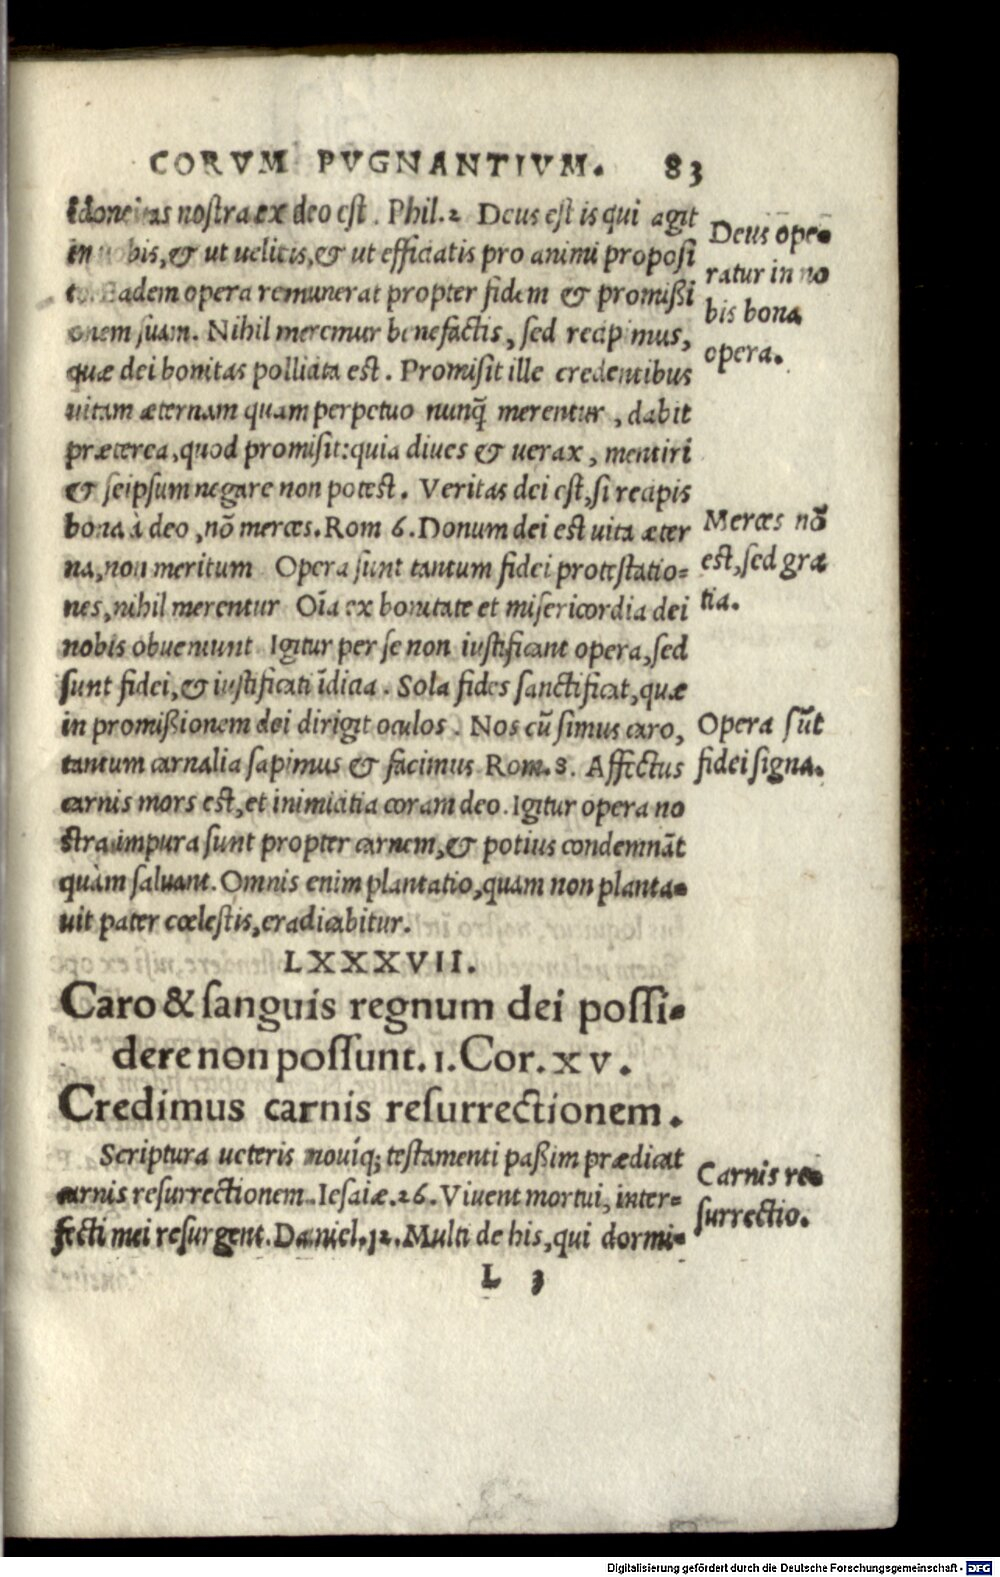 CORVM PVGNANTIVM. 83
Idoneitas nostra ex deo est. Phil.2 Deus est is qui agit
in uobis, & ut uelitis, & ut efficiatis pro animi proposi
to. Eadem opera remunerat propter fidem & promißi
onem suam. Nihil meremur benefactis, sed recipimus,
quæ dei bonitas pollicita est. Promisit ille credentibus
uitam æternam quam perpetuo nunq̃ merentur, dabit
præterea, quod promisit: quia diues & uerax, mentiri
& seipsum negare non potest. Veritas dei est, si recipis
bona à deo, nõ merces. Rom 6. Donum dei est uita æter
na, non meritum Opera sunt tantum fidei protestatio=
nes, nihil merentur Oĩa ex bonitate et misericordia dei
nobis obueniunt Igitur per se non iustificant opera, sed
sunt fidei, & iustificati ĩdicia. Sola fides sanctificat, quæ
in promißionem dei dirigit oculos. Nos cũ simus caro,
tantum carnalia sapimus & facimus Rom.8. Affectus
carnis mors est, et inimicitia coram deo. Igitur opera no
stra impura sunt propter carnem, & potius condemnãt
quàm saluant. Omnis enim plantatio, quam non planta=
uit pater cœlestis, eradicabitur.
Deus ope=
ratur in no
bis bona
opera.
Merces nõ
est, sed gra
tia.
Opera sũt
fidei signa.
LXXXVII.
Caro & sanguis regnum dei possi=
dere non possunt. 1. Cor. XV.
Credimus carnis resurrectionem.
Scriptura ueteris nouiq; testamenti paßim prædicat
carnis resurrectionem. Iesaiæ.26. Viuent mortui, inter=
fecti mei resurgent. Daniel.12. Multi de his, qui dormi=
Carnis re=
surrectio.
L 3
Digitalisierung gefördert durch die Deutsche Forschungsgemeinschaft - DFG